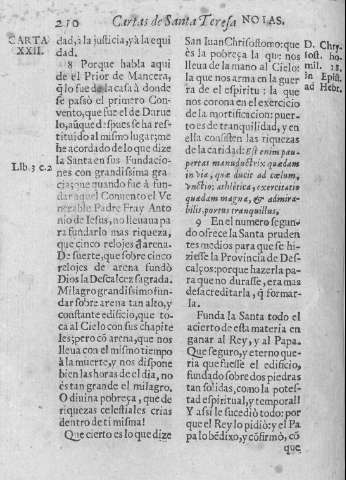 210 Cartas de Santa Teresa NOTAS.
CARTA
XXII.
dad, à la justicia, y à la equi
dad.
8 Porque habla aqui
de el Prior de Mancera,
q̃ lo fue de la casa à donde
se passò el primero Con-
vento, que fue el de Durue
lo, aũque dèspues se ha res-
tituido al mismo lugar; me
he acordado de lo que dize
la Santa en sus Fundacio-
nes con grandissima gra-
cia; que quando fue à fun-
dar aquel Convento el Ve
nerable Padre Fray Anto
nio de Iesus, no llevava pa
ra fundarlo mas riqueza,
que cinco relojes de arena.
De suerte, que sobre cinco
relojes de arena fundò
Dios la Descalcez sagrada.
Milagro grandissimo fun-
dar sobre arena tan alto, y
constante edificio, que to-
ca al Cielo con sus chapite
les; pero cõ arena, que nos
lleva con el mismo tiempo
à la muerte, y nos dispone
bien las horas de el dia, no
es tan grande el milagro.
O divina pobreza, que de
riquezas celestiales crias
dentro de ti misma!
Que cierto es lo que dize
Lib. 3 c. 2
San Iuan Chrisostomo: que
ès la pobreza la que nos
lleva de la mano al Cielo:
la que nos arma en la guer
ra de el espiritu: la que
nos corona en el exercicio
de la mortificacion: puer-
to es de tranquilidad, y en
ella consisten las riquezas
de la caridad: Est enim pau-
pertas manuductrix quædam
in via, quæ ducit ad cœlum,
vnctio; athletica, exercitatio
quædam magna, & admira-
bilis portus tranquillus,
9 En el numero segun-
do ofrece la Santa pruden
tes medios para que se hi-
ziesse la Provincia de Des-
calços: porque hazerla pa-
ra que no durasse, era mas
desacreditarla, q̃ formar-
la.
Funda la Santa todo el
acierto de esta materia en
ganar al Rey, y al Papa.
Que seguro, y eterno que-
ria que fuesse el edificio,
fundado sobre dos piedras
tan solidas, como la potes-
tad espiritual, y temporal!
Y assi le sucediò todo: por
que el Rey lo pidiò: y el Pa
pa lo bẽdixo, y cõfirmò, cõ
que
D. Chry
sost. ho
mil. 18.
in Epist.
ad Hebr.